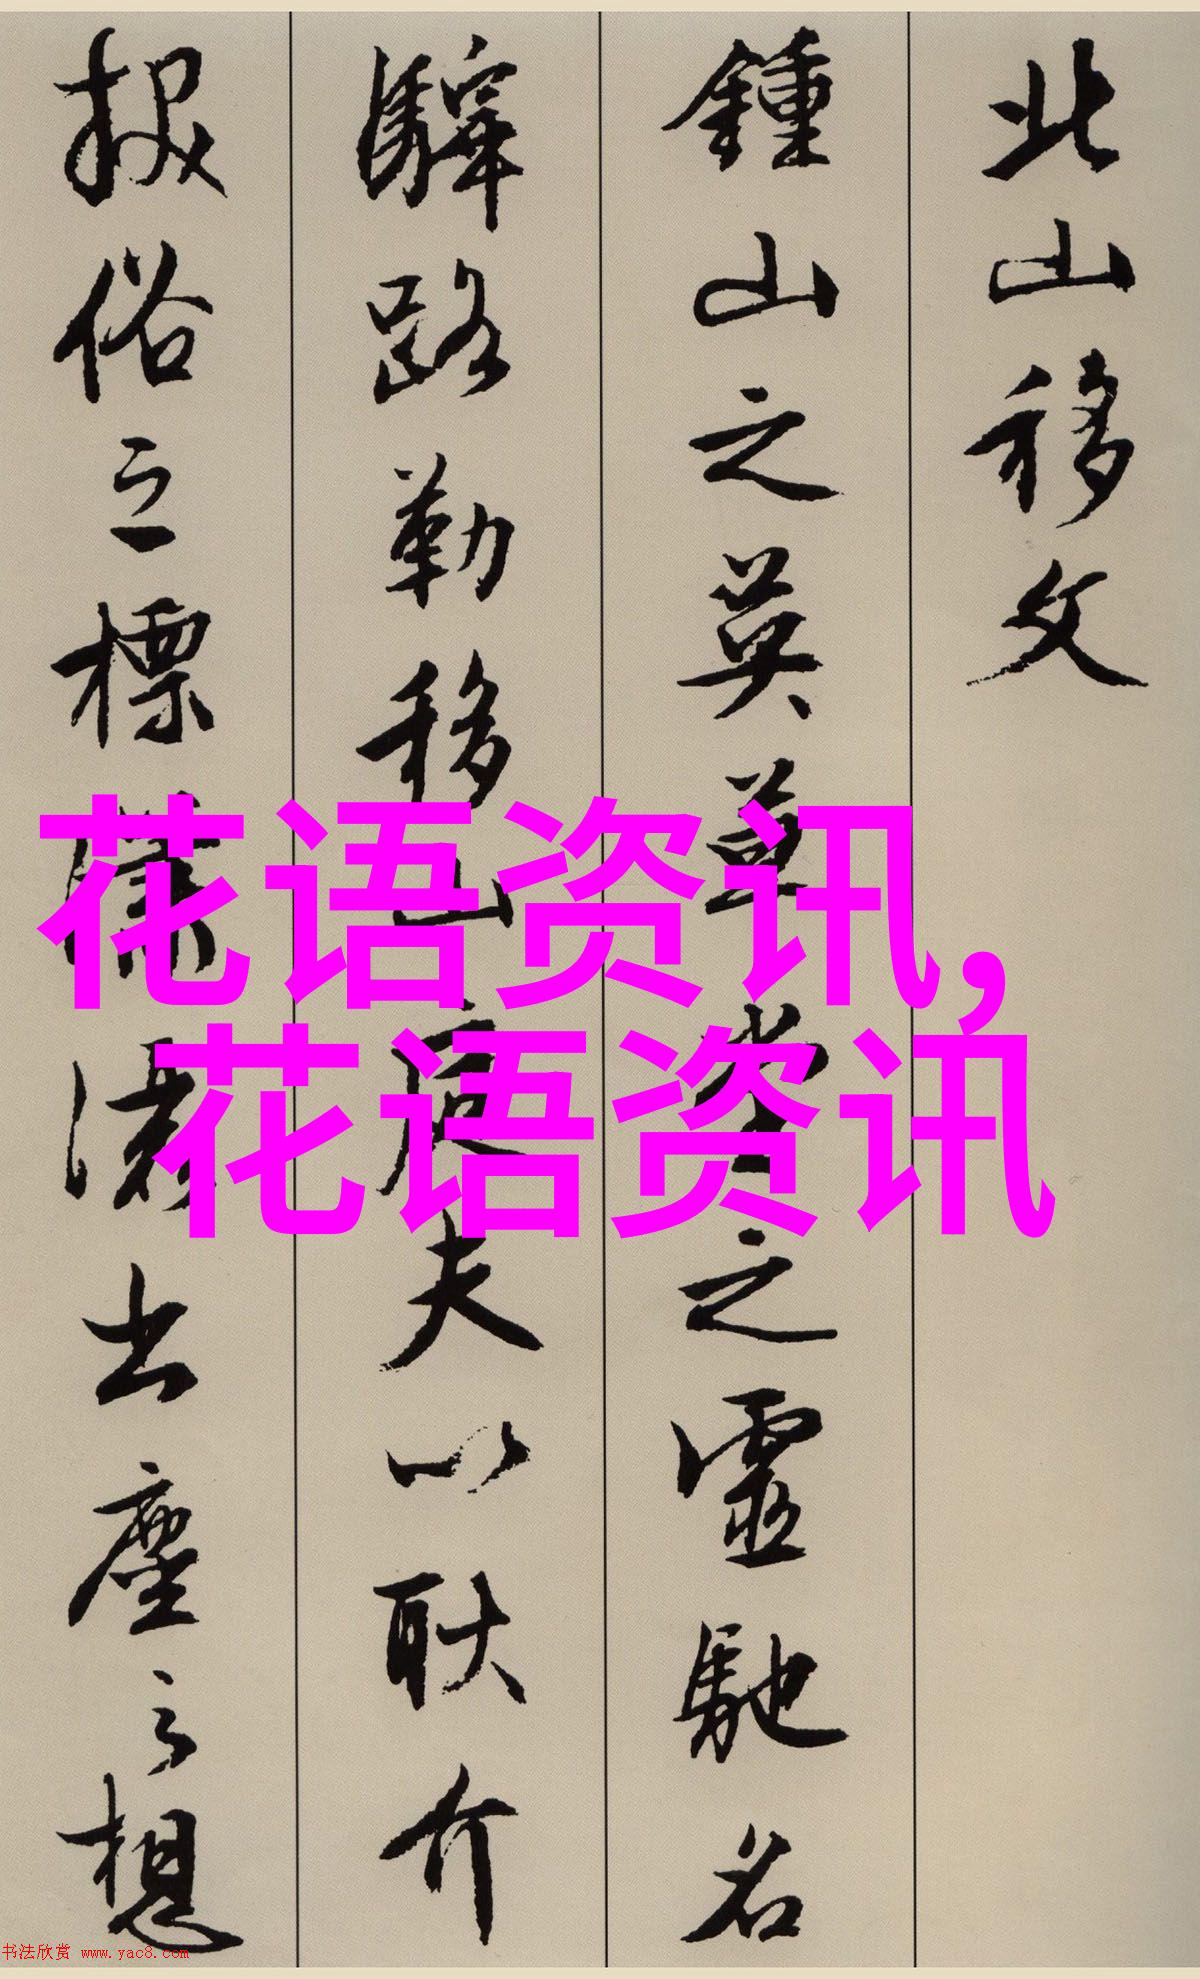 北山移文
鍾山之英草堂之靈馳名
驛路勒移山庭夫以耿介
拔俗之標瀟灑出塵之想
花语资讯,
花语资讯
书法欣赏 www.yac8.com